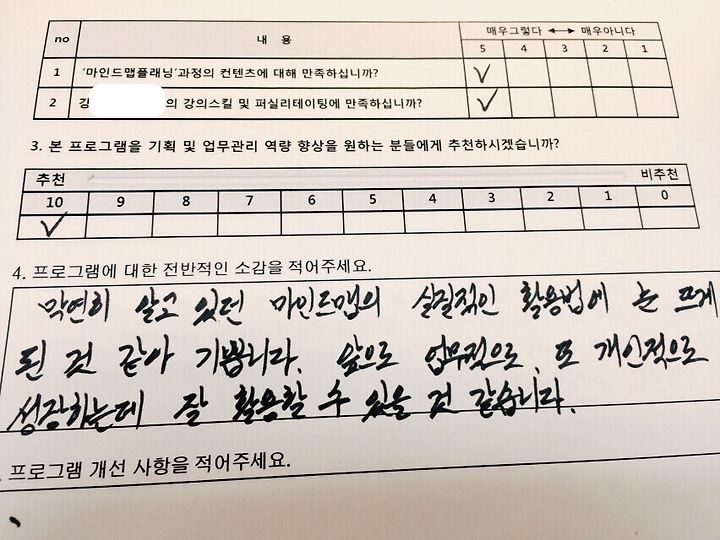 no 내 용 매우그렇다 ↔ 매우아니다
5 4 3 2 1
1 '마인드맵플래닝'과정의 컨텐츠에 대해 만족하십니까? ✓
2 강 의 강의스킬 및 퍼실리테이팅에 만족하십니까? ✓
3. 본 프로그램을 기획 및 업무관리 역량 향상을 원하는 분들에게 추천하시겠습니까?
추천 비추천
10 9 8 7 6 5 4 3 2 1 0
✓
4. 프로그램에 대한 전반적인 소감을 적어주세요.
막연히 알고 있던 마인드맵의 실질적인 활용법에 눈 뜨게
된 것 같아 기쁩니다. 앞으로 업무적으로, 또 개인적으로
성장하는데 잘 활용할 수 있을 것 같습니다.
. 프로그램 개선 사항을 적어주세요.